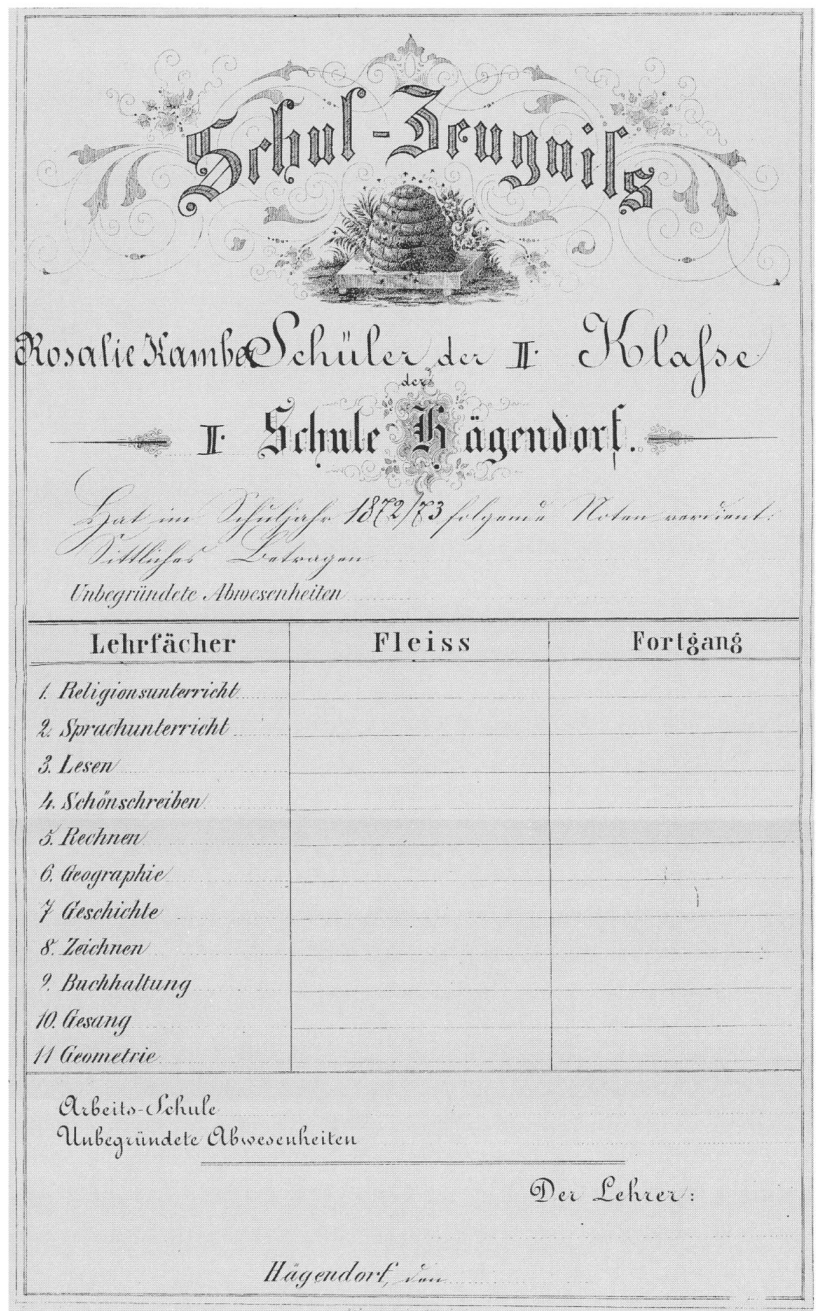 Schul-Zeugniss
Rosalie Kamber Schüler der II. Klasse
der
II. Schule Hägendorf.
Hat im Schuljahr 1872/73 folgende Noten verdient:
Sittliches Betragen
Unbegründete Abwesenheiten
Lehrfächer Fleiss Fortgang
1. Religionsunterricht
2. Sprachunterricht
3. Lesen
4. Schönschreiben
5. Rechnen
6. Geographie
7 Geschichte
8. Zeichnen
9. Buchhaltung
10. Gesang
11 Geometrie
Arbeits-Schule
Unbegründete Abwesenheiten
Der Lehrer:
Hägendorf, den